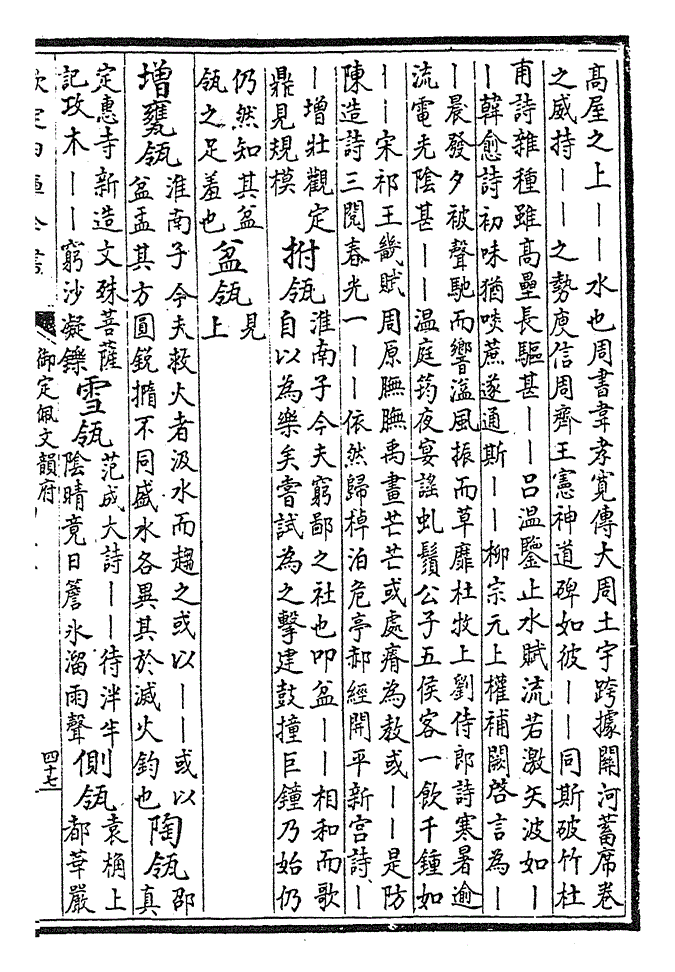 高屋之上丨丨水也周書韋孝寬傳大周土宇跨據關河蓄席卷
之威持丨丨之勢庾信周齊王憲神道碑如彼丨丨同斯破竹杜
甫詩雜種雖高壘長驅甚丨丨呂温鑒止水賦流若激矢波如丨
丨韓愈詩初味猶啖蔗遂通斯丨丨柳宗元上權補闕啓言為丨
丨晨發夕被聲馳而響溢風振而草靡杜牧上劉侍郎詩寒暑逾
流電光陰甚丨丨温庭筠夜宴謡虬鬚公子五侯客一飲千鍾如
丨丨宋祁王畿賦周原膴膴禹畫芒芒或處瘠為教或丨丨是防
陳造詩三閱春光一丨丨依然歸棹泊危亭郝經開平新宫詩丨
丨增壯觀定
鼎見規模
拊瓴
淮南子今夫窮鄙之社也叩盆丨丨相和而歌
自以為樂矣嘗試為之擊建鼓撞巨鐘乃始仍
仍然知其盆
瓴之足羞也
盆瓴
見
上
增甕瓴
淮南子今夫救火者汲水而趨之或以丨丨或以
盆盂其方圓銳橢不同盛水各異其於滅火鈞也
陶瓴
邵
真
定惠寺新造文殊菩薩
記攻木丨丨窮沙凝鑠
雪瓴
范成大詩丨丨待泮半
陰晴竟日簷氷溜雨聲
側瓴
袁桷上
都華嚴
欽定四庫全書
御定佩文韻府
四十七